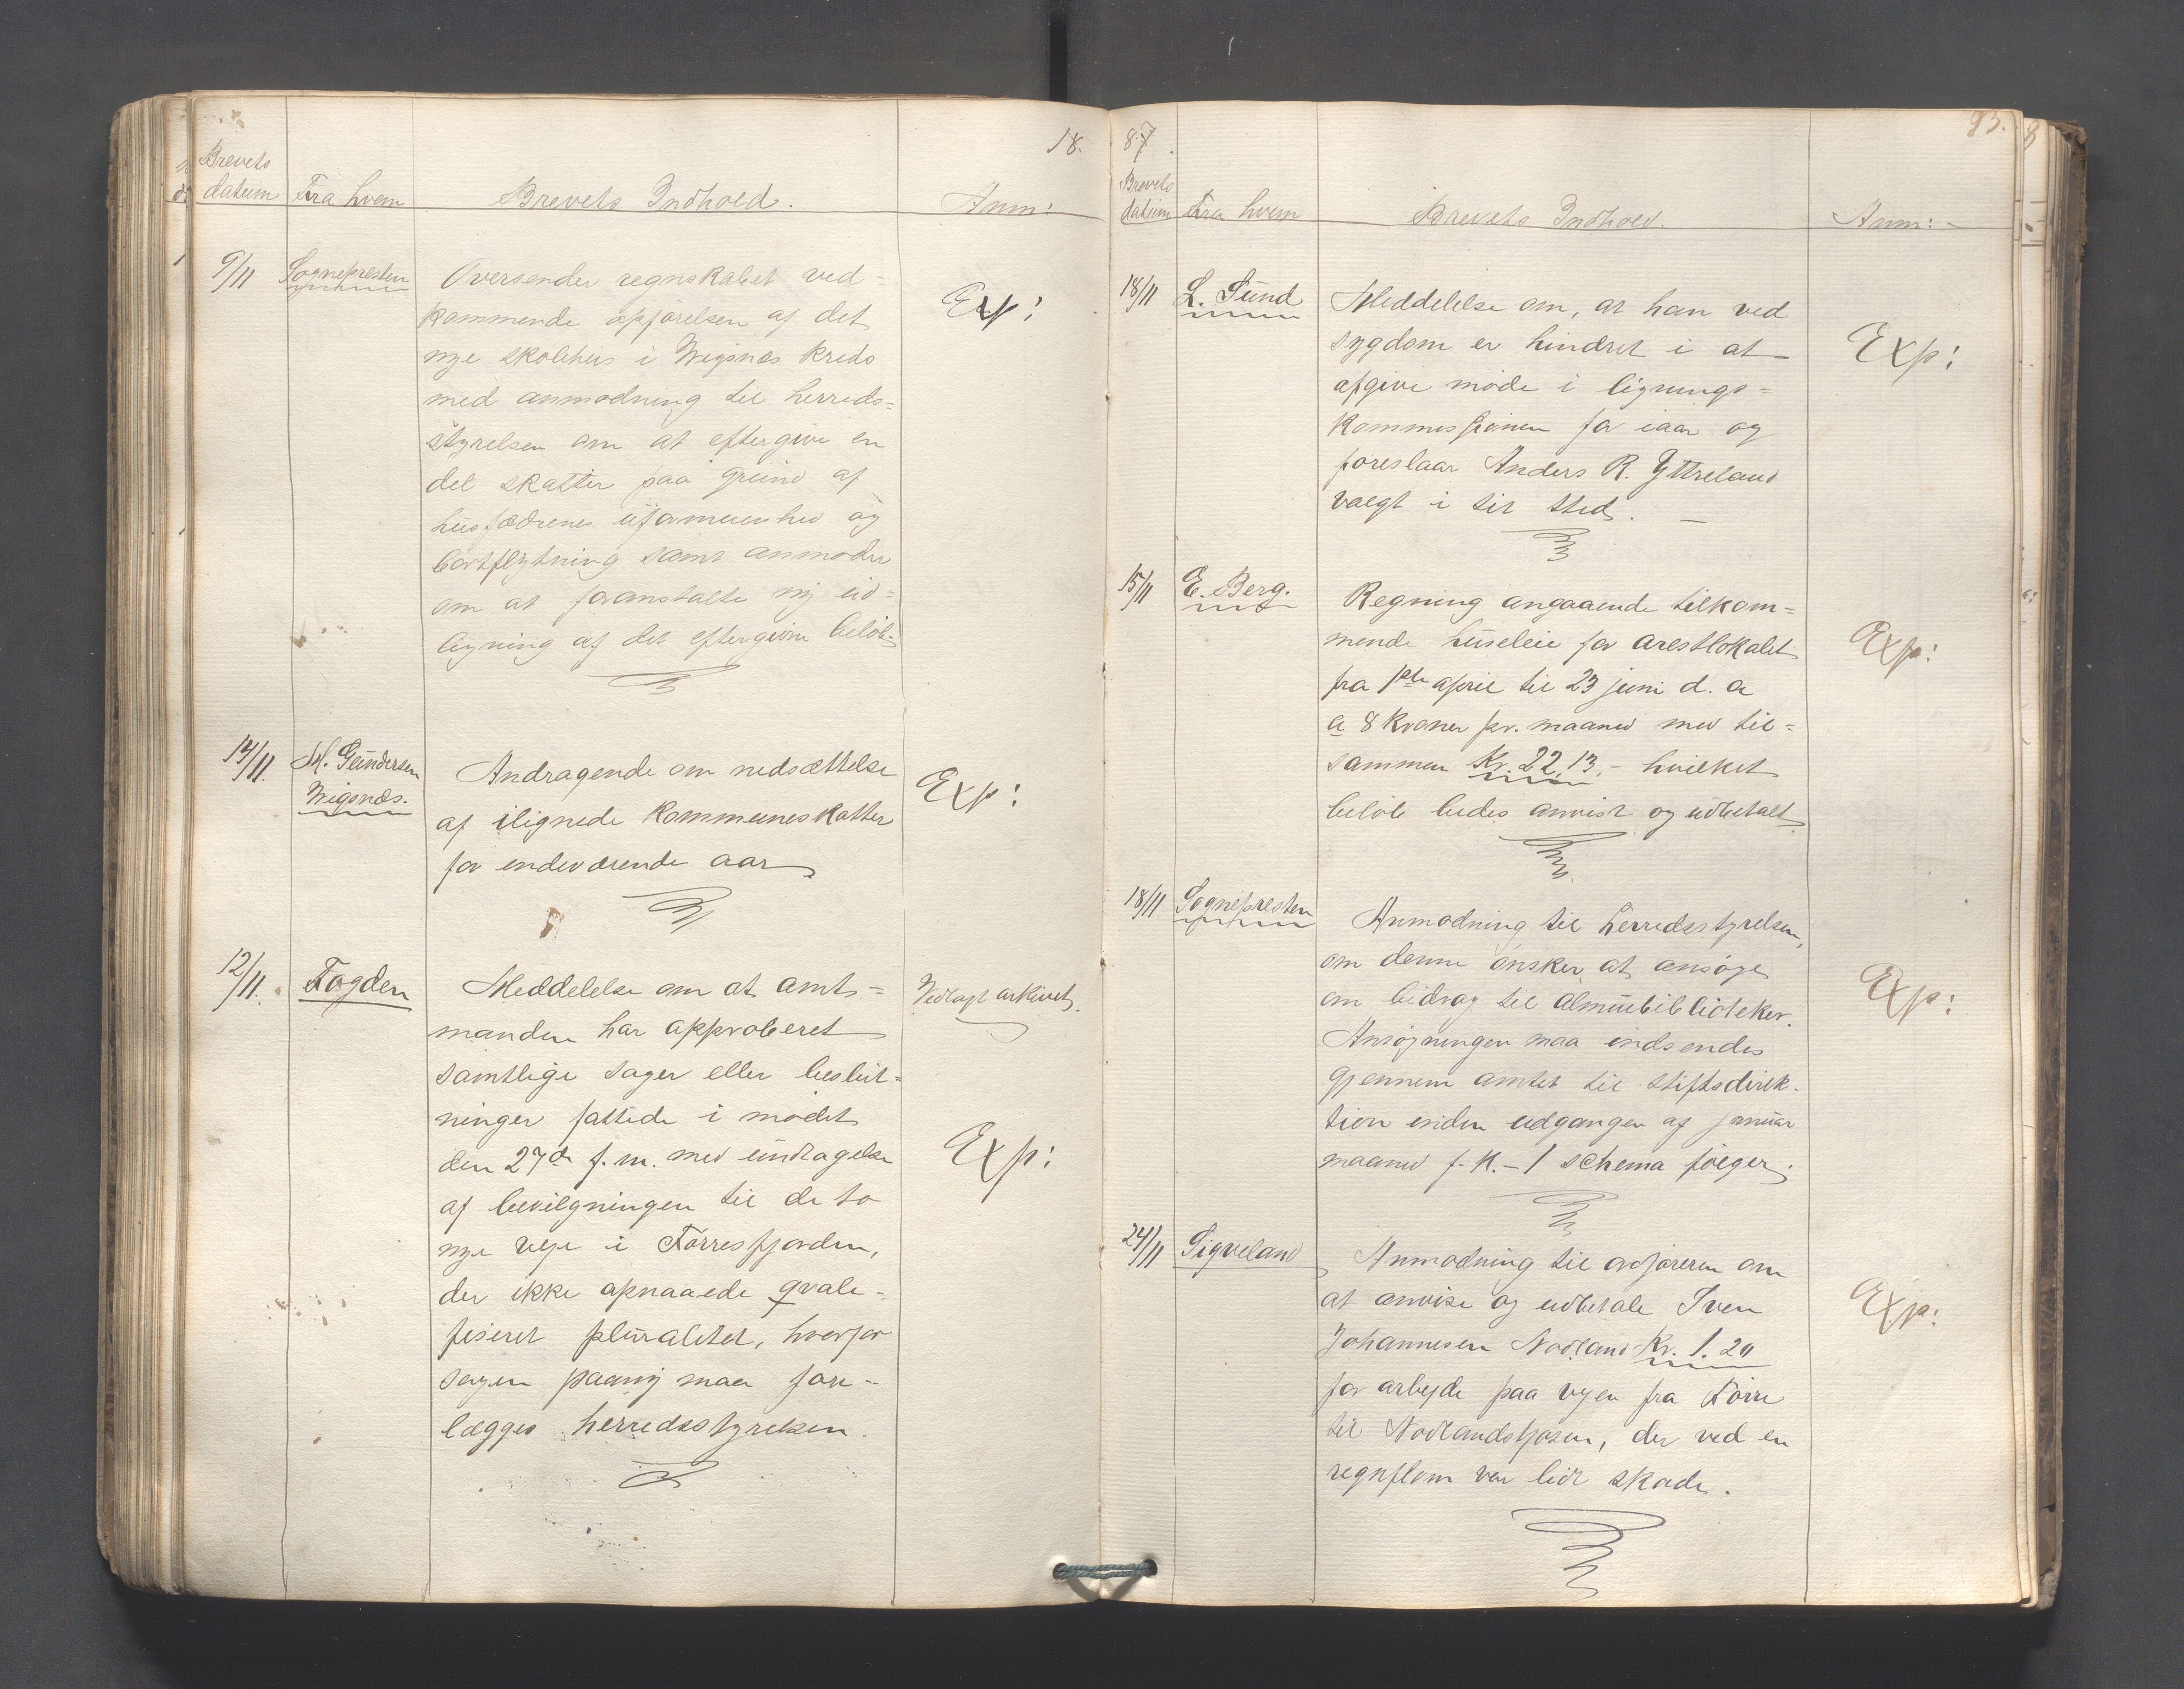 18.
Brevets
datum Fra hvem Brevets Indhold. Anm:
9/11 Sognepresten Oversender regnskabet ved-
kommende opførelsen af det
nye skolehus i Wigsnæs kreds
med anmodning til herreds-
styrelsen om at eftergive en
del skatter paa grund af
husfædrenes uformuenhed og
bortflytning samt anmoder
om at foranstalte ny ud-
ligning af det eftergivne beløb.
Exp:
14/11. M. Gundersen
Wigsnæs.
Andragende om nedsættelse
af ilignede kommuneskatter
for indeværende aar.
Exp:
12/11. Fogden Meddelelse om at amt-
manden har approberet
samtlige sager eller beslut-
ninger fattede i mødet
den 27de f. m. med undtagelse
af bevilgningen til de to
nye veje i Førresfjorden,
der ikke opnaaede qvali-
fiseret pluralitet, hvorfor
sagen paany maa fore-
lægges herredsstyrelsen.
Vedlagt arkivet.
Exp:
87. 93.
Brevets
datum Fra hvem Brevets Indhold. Anm:
18/11 L. Sund Meddelelse om, at han ved
sygdom er hindret i at
afgive møde i lignings-
kommissionen for iaar og
foreslaar Anders R. Yttreland
valgt i sit sted.
Exp:
15/11 E. Berg. Regning angaaende tilkom-
mende husleie for arestlokalet
fra 1ste april til 23 juni d. a
a 8 kroner pr. maaned med til-
sammen Kr. 22,13,- hvilket
beløb bedes anvist og udbetalt.
Exp:
18/11. Sognepresten Anmodning til herredsstyrelsen,
om denne ønsker at ansøge
om bidrag til almuebibliotheker.
Ansøgningen maa indsendes
gjennem amtet til stiftsdirek-
tion inden udgangen af januar
maaned f. K. - 1 schema følger.
Exp:
24/11 Sigveland Anmodning til ordføreren om
at anvise og udbetale Iven
Johannesen Nodland Kr. 1.20
for arbejde paa vejen fra Førre
til Nodlandsfossen, der ved en
regnflom var lidt skade.
Exp: